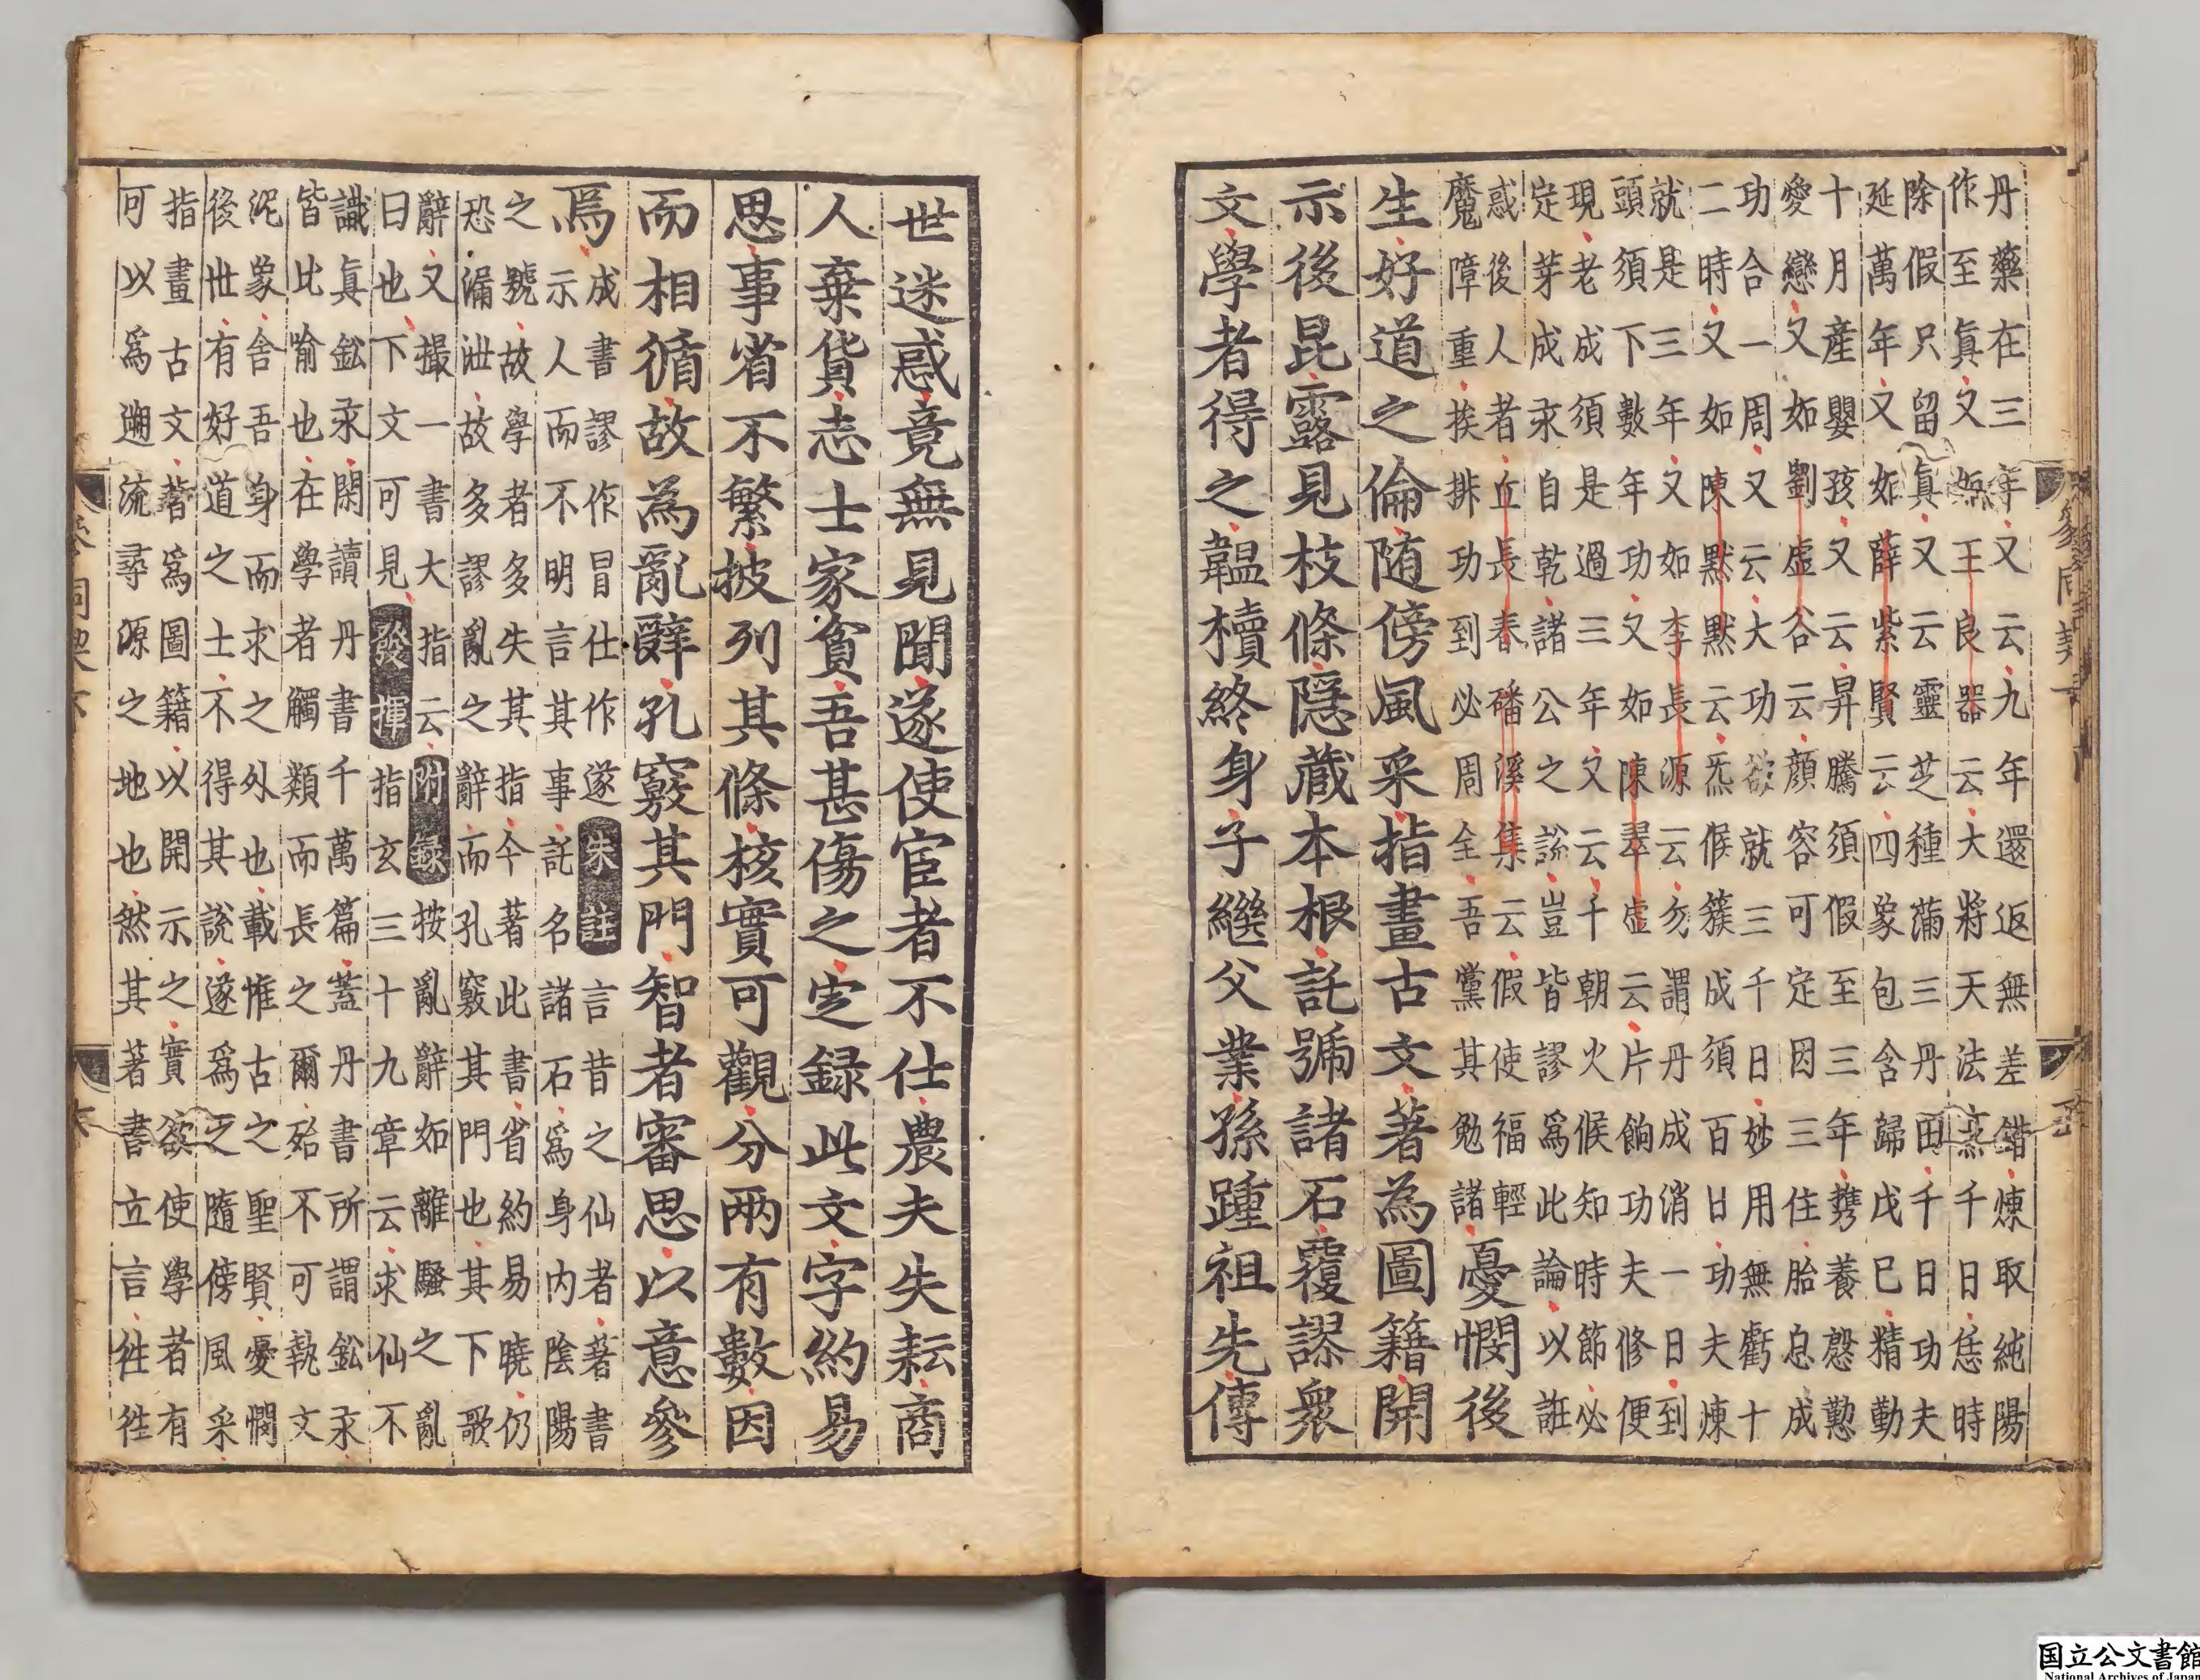 丹藥在三年又云九年還返無差錯煉取純陽
作至真又如王良器云大將天法烹千日恁時
除假只留真又云靈芝種滿三丹田千日功夫
延萬年又如薛紫賢云四象包含歸戊巳精勤
十月產嬰孩又云昇騰須假至三年㩦養慇懃
愛戀又如劉虛谷云顔容可定因三住胎息成
功合一周又云大功欲就三千日妙用無虧十
二時又如陳默默云炁候簇成須百日功夫煉
就是三年又如李長源云勿謂丹成消一日到
頭須下數年功又如陳翠虛云片餉功夫修便
現老成須是過三年又云千朝火候知時節必
定芽成汞自乾諸公之說豈皆謬爲此論以誑
惑後人者丘長春磻溪集云假使福輕
魔障重挨排功到必周全吾黨其勉諸
憂憫後
生好道之倫随傍風采指畫古文著為圖籍開
示後昆露見枝條隱蔵本根託號諸石覆謬衆
文學者得之韞櫝終身子繼父業孫踵祖先傳
世迷惑竟無見聞遂使宦者不仕農夫失耘商
人棄貨志士家貧吾甚傷之定録此文字約易
思事省不繁披列其條核實可觀分兩有數因
而相循故為亂辭孔竅其門智者審思以意參
焉
成書謬作冒仕作遂朱註言昔之仙者著書
示人而不明言其事託名諸石爲身内陰陽
之號故學者多失其指今著此書省約易曉仍
恐漏泄故多謬亂之辭而孔竅其門也其下歌
辭又撮一書大指云附録按亂辭如離騷之亂
曰也下文可見發揮指玄三十九章云求仙不
識真鈆汞閑讀丹書千萬篇蓋丹書所謂鈆汞
皆比喻也在學者觸類而長之爾殆不可執文
泥象舍吾身而求之外也載惟古之聖賢憂憫
後世有好道之士不得其說遂爲之隨傍風采
指畫古文著爲圖籍以開示之實欲使學者有
可以爲遡流尋源之地也然其著書立言徃徃
国立公文書館
National Archives of Japan